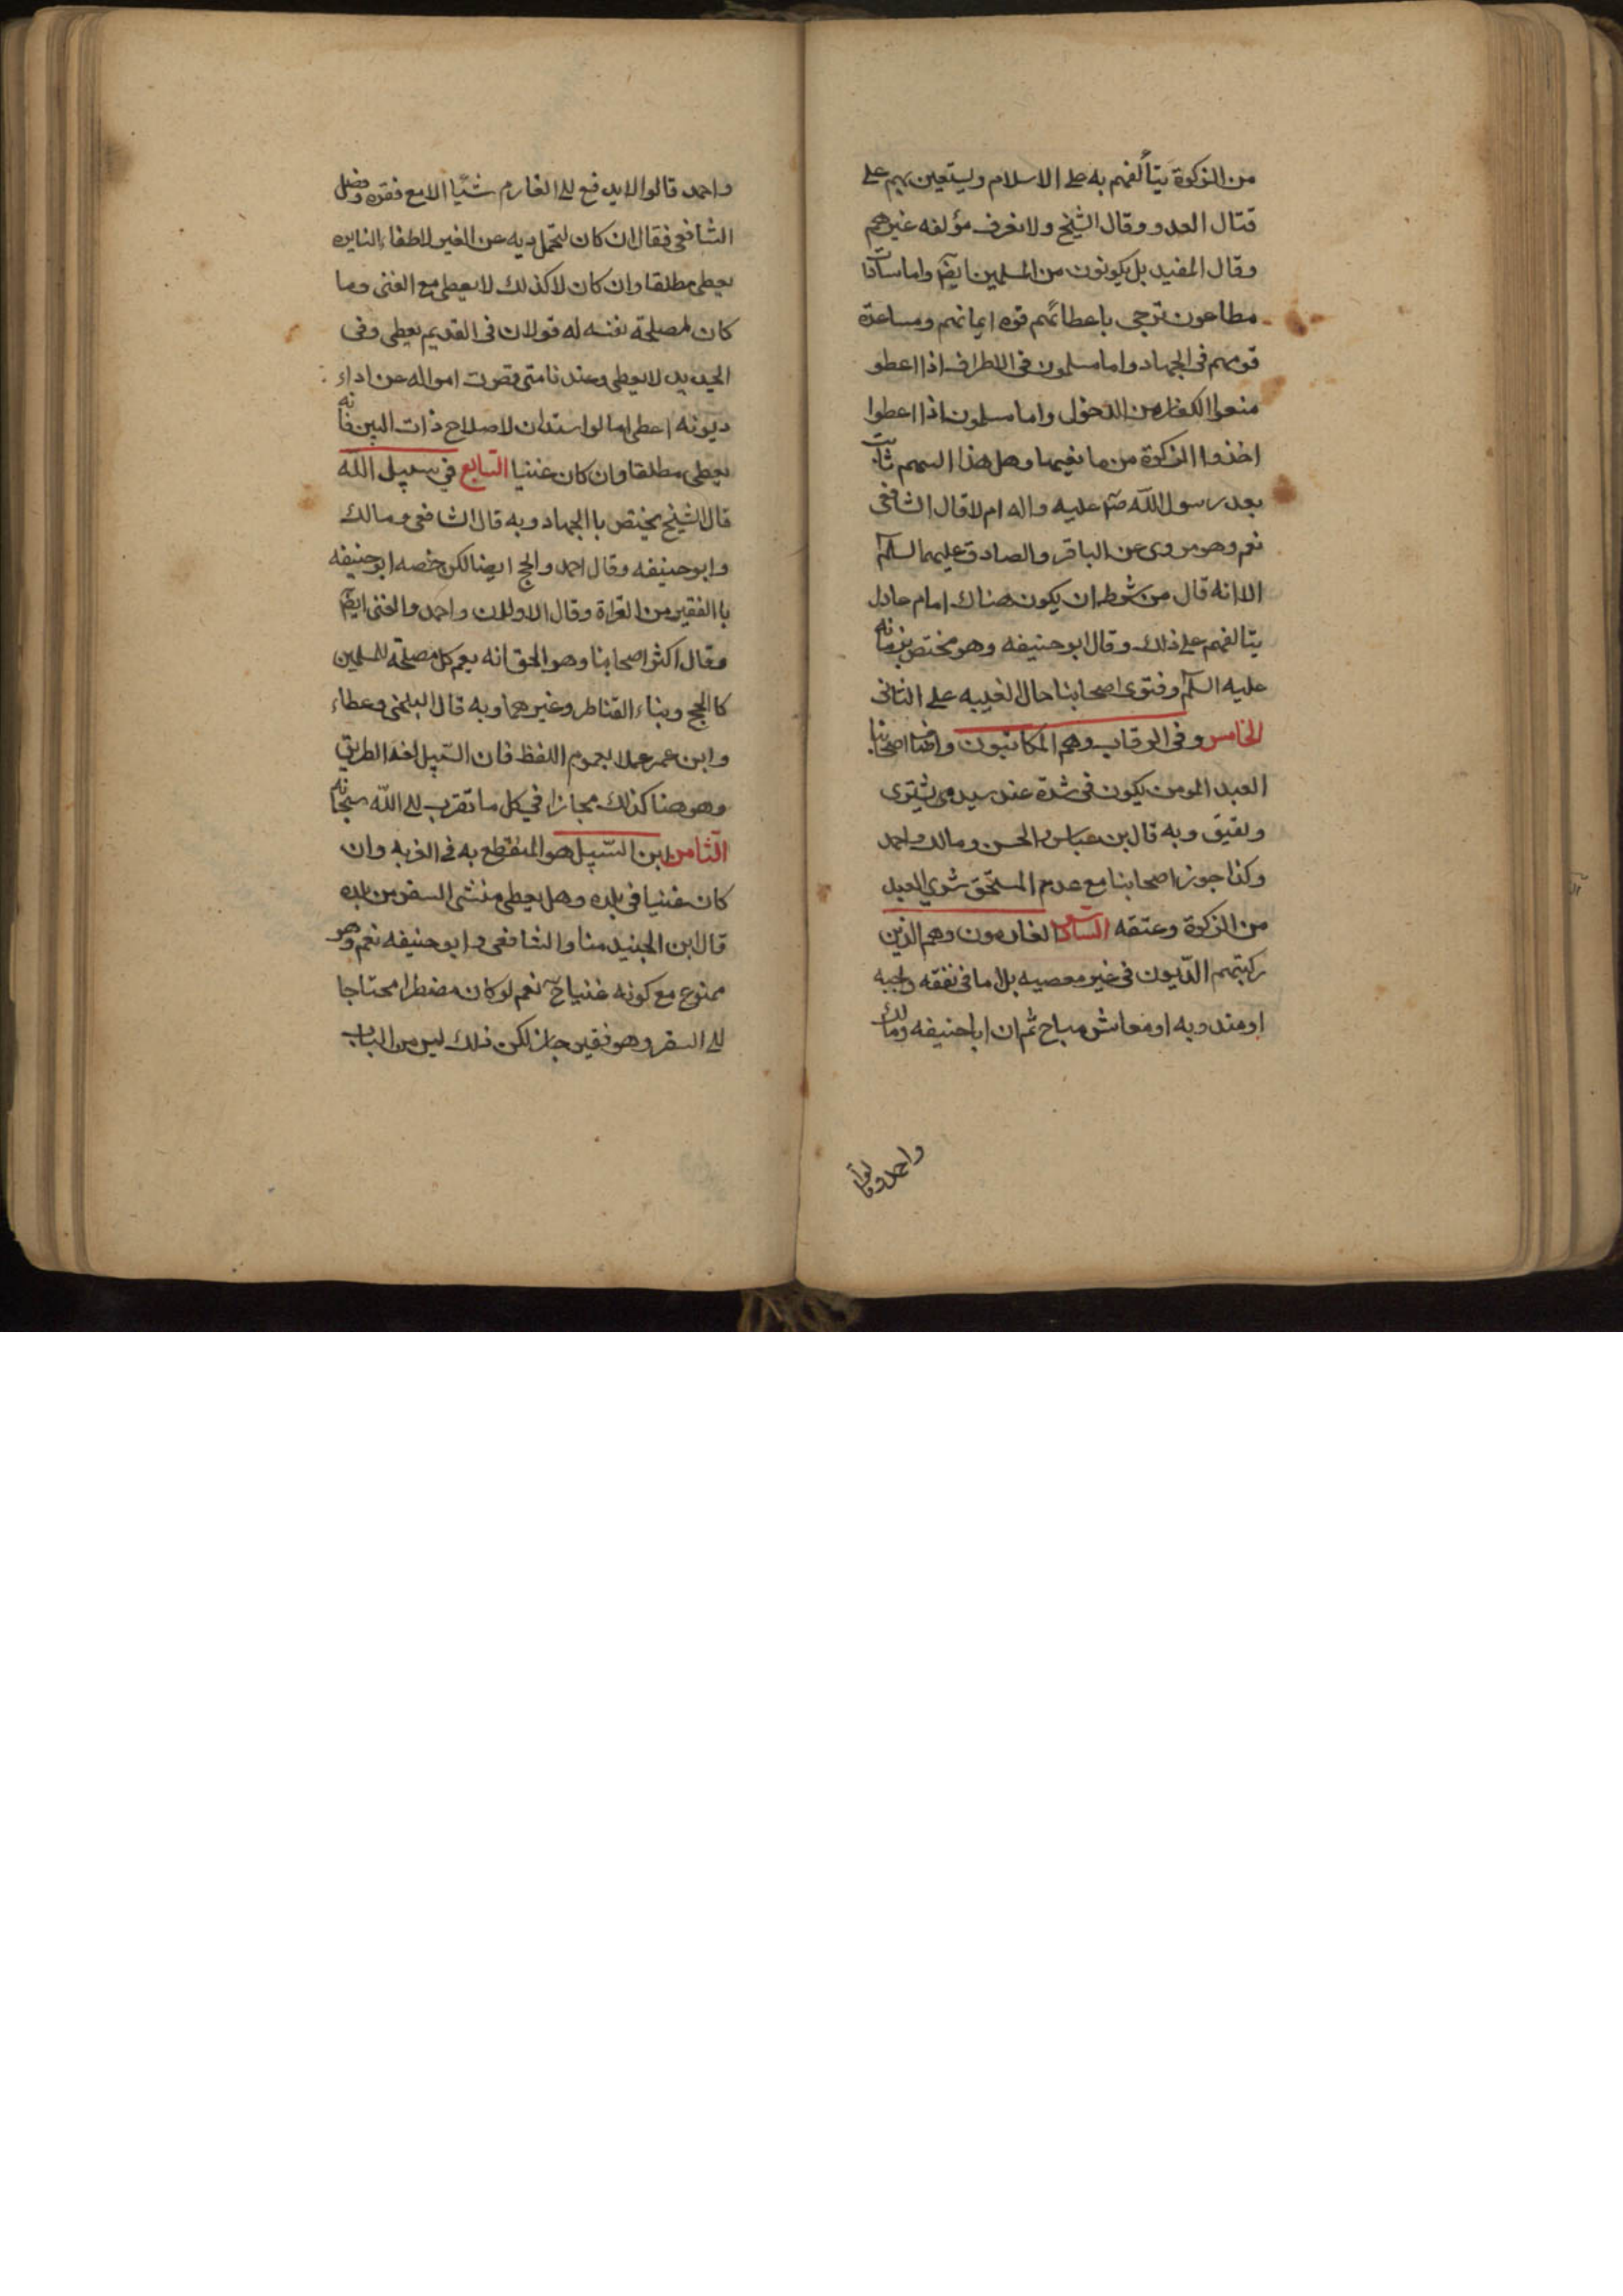 من الزكوة يتألفهم به على الاسلام ويستعين بهم على
قتال العدو وقال الشيخ ولا نعرف مؤلفه غيرهم
وقال المفيد بل يكونون من المسلمين ايضا واما سادات
مطاعون ترجى باعطائهم قوه ايمانهم ومساعدة
قومهم فى الجهاد واما مسلمون فى الاطراف اذا اعطو
منعوا الكفار من الدخول واما مسلمون اذا اعطوا
اخذوا الزكوة من مانعيها وهل هذا السهم ثابت
بعد رسول الله صم عليه واله ام لا قال الشافعى
نعم وهو مروى عن الباقر والصادق عليهما السلم
الا انه قال من شرطه ان يكون هناك امام عادل
يتالفهم على ذلك وقال ابو حنيفه وهو مختص بزمانه
عليه السلم وفتوى اصحابنا حال الغيبه على الثانى
الخامس وفى الرقاب وهم المكاتبون واضاف اصحابنا
العبد المومن يكون فى شدة عند سيده يشترى
ويعتق وبه قال بن عباس والحسن ومالك واحمد
وكذا جوز اصحابنا مع عدم المستحق شرى العبد
من الزكوة وعتقه السادس الغارمون وهم الذين
ركبتهم الديون فى غير معصيه بل اما فى نفقه واجبه
او مندوبه او معاش مباح ثم ان ابا حنيفه ومالك
واحمد وقالوا
واحمد قالوا لا يدفع الى الغارم شيا الا مع فقره وفصل
الشافعى فقال ان كان لتحمل ديه عن الغير لاطفاء النايره
يعطى مطلقا وان كان لا كذلك لا يعطى مع الغنى وما
كان لمصلحة نفسه له قولان فى القديم يعطى وفى
الجديد لا يعطى وعندنا متى قصرت امواله عن اداء
ديونه اعطى اما لو استدان لاصلاح ذات البين فانه
يعطى مطلقا وان كان غنيا السابع فى سبيل الله
قال الشيخ يختص با الجهاد وبه قال الشافعى ومالك
وابو حنيفه وقال احمد والحج ايضا لكن خصه ابو حنيفه
با الفقير من الغزاة وقال الاولان واحمد والغنى ايضا
وقال اكثر اصحابنا وهو الحق انه يعم كل مصلحة للمسلمين
كا الحج وبناء القناطر وغيرهما وبه قال البلخى وعطاء
وابن عمر عملا بعموم اللفظ فان السبيل لغة الطريق
وهو هنا كذلك مجازا فى كل ما تقرب الى الله سبحانه
الثامن ابن السبيل هو المنقطع به فى الغربه وان
كان غنيا فى بلده وهل يعطى منشى السفر من بلده
قال ابن الجنيد منا والشافعى وابو حنيفه نعم وهو
ممنوع مع كونه غنيا ح نعم لو كان مضطرا محتاجا
الى السفر وهو فقير جاز لكن ذلك ليس من الباب